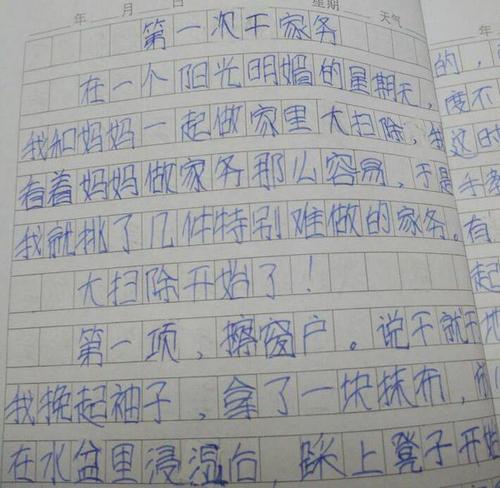 年 月 日 星期 天气
第一次干家务
在一个阳光明媚的星期天，
我和妈妈一起做家里大扫除，我
看着妈妈做家务那么容易，于是
我就挑了几件特别难做的家务。
大扫除开始了！
第一项，擦窗户。说干就干
我挽起袖子，拿了一块抹布，
在水盆里浸湿后，踩上凳子开始
年
的，
度不
这的
手
有
起